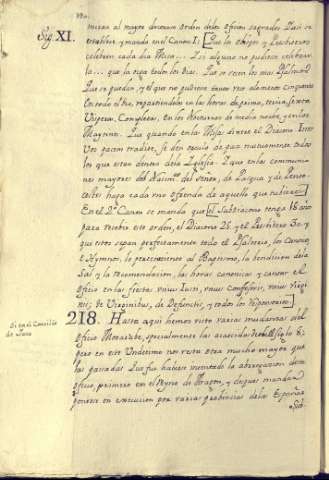 Sig. XI.
mirar al mayor decoro en orden delos oficios sagrados. Pasi se
establece, y manda en el Canon I: Que los Obispos y Presbiteros
celebren cada dia Misa... I si alguno no pudiere celebrar
la... que la oiga todos los dias. Que se recen los mas Psalmos
que se puedan, y el que no pudiere tenga rezo alomenos cinquenta
en todo el dia, repartiendolos en las horas de prima, tercia, sexta
Visperas, Completas, en los Nocturnos de media noche, y en los
Maytines. Que quando en la Misa dixere el Diacono Inter
vos pacem tradite, se den osculo de paz mutuamente todos
los que estan dentro dela Iglesia. I que en las communio
nes mayores del Nacim.to del Señor, de Pasqua y de Pente-
costes haga cada uno ofrenda de aquello que tubiere.
En el 2.º Canon se manda que el Subdiacono tenga 18 años
para recebir este orden, el Diacono 25. y el Presbitero 30. y
que estos sepan perfectamente todo el Psalterio, los Canticos,
e Hymnos, lo perteneciente al Baptismo, la bendicion dela
Sal y la recomendacion, las horas canonicas y cantar el
oficio en las fiestas unius Justi, unius Confessoris, unius Virgi-
nis; de Virginibus, de Defunctis, y todos los responsorios.
218. Hasta aqui hemos visto varias mudanzas del
Oficio Mozarabe, especialmente las acaecidas en este siglo XI,
pero en este Undecimo nos resta otra mucho mayor que
las pasadas. Esta fue haberse intentado la abrogacion de tal
oficio, primero en el Reyno de Aragon, y despues mandar
ponerse en execucion por varias provincias dela España